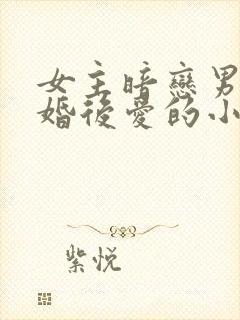 女主暗戀男
婚後愛的小
紫悅